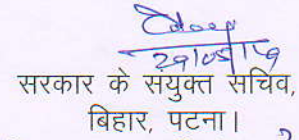 29/05/19
सरकार के संयुक्त सचिव,
बिहार, पटना।